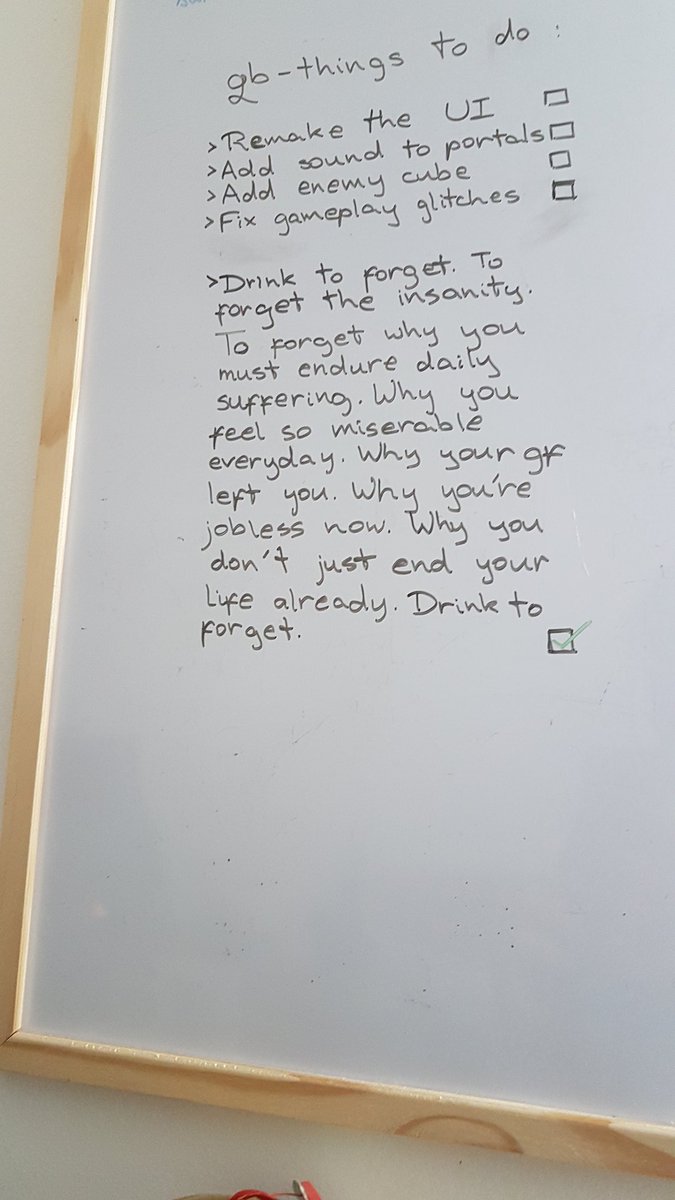 gb-things to do :
>Remake the UI
>Add sound to portals
>Add enemy cube
>Fix gameplay glitches
>Drink to forget. To
forget the insanity.
To forget why you
must endure daily
suffering. Why you
feel so miserable
everyday. Why your gf
left you. Why you're
jobless now. Why you
don't just end your
life already. Drink to
forget.